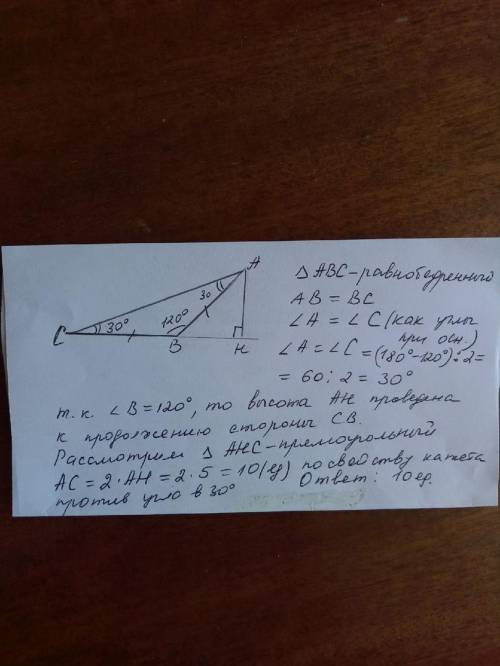 A
30
120°
30°
C
B
H
Δ ABC-равнобедренный
AB = BC
∠A = ∠C (как углы
при осн.)
∠A = ∠C = (180°-120°):2=
= 60:2 = 30°
т.к. ∠B=120°, то высота AH проведена
к продолжению стороны CB.
Рассмотрим Δ AHC-прямоугольный
AC = 2·AH = 2·5 = 10(ед) по свойству катета
против угла в 30° Ответ: 10 ед.